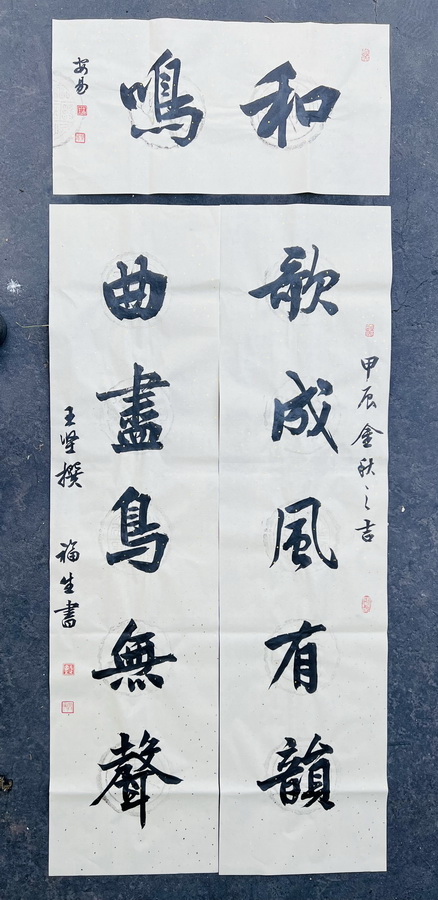 和鳴
安易
甲辰金秋之吉
歌成風有韻
曲盡鳥無聲
王坚撰 福生書